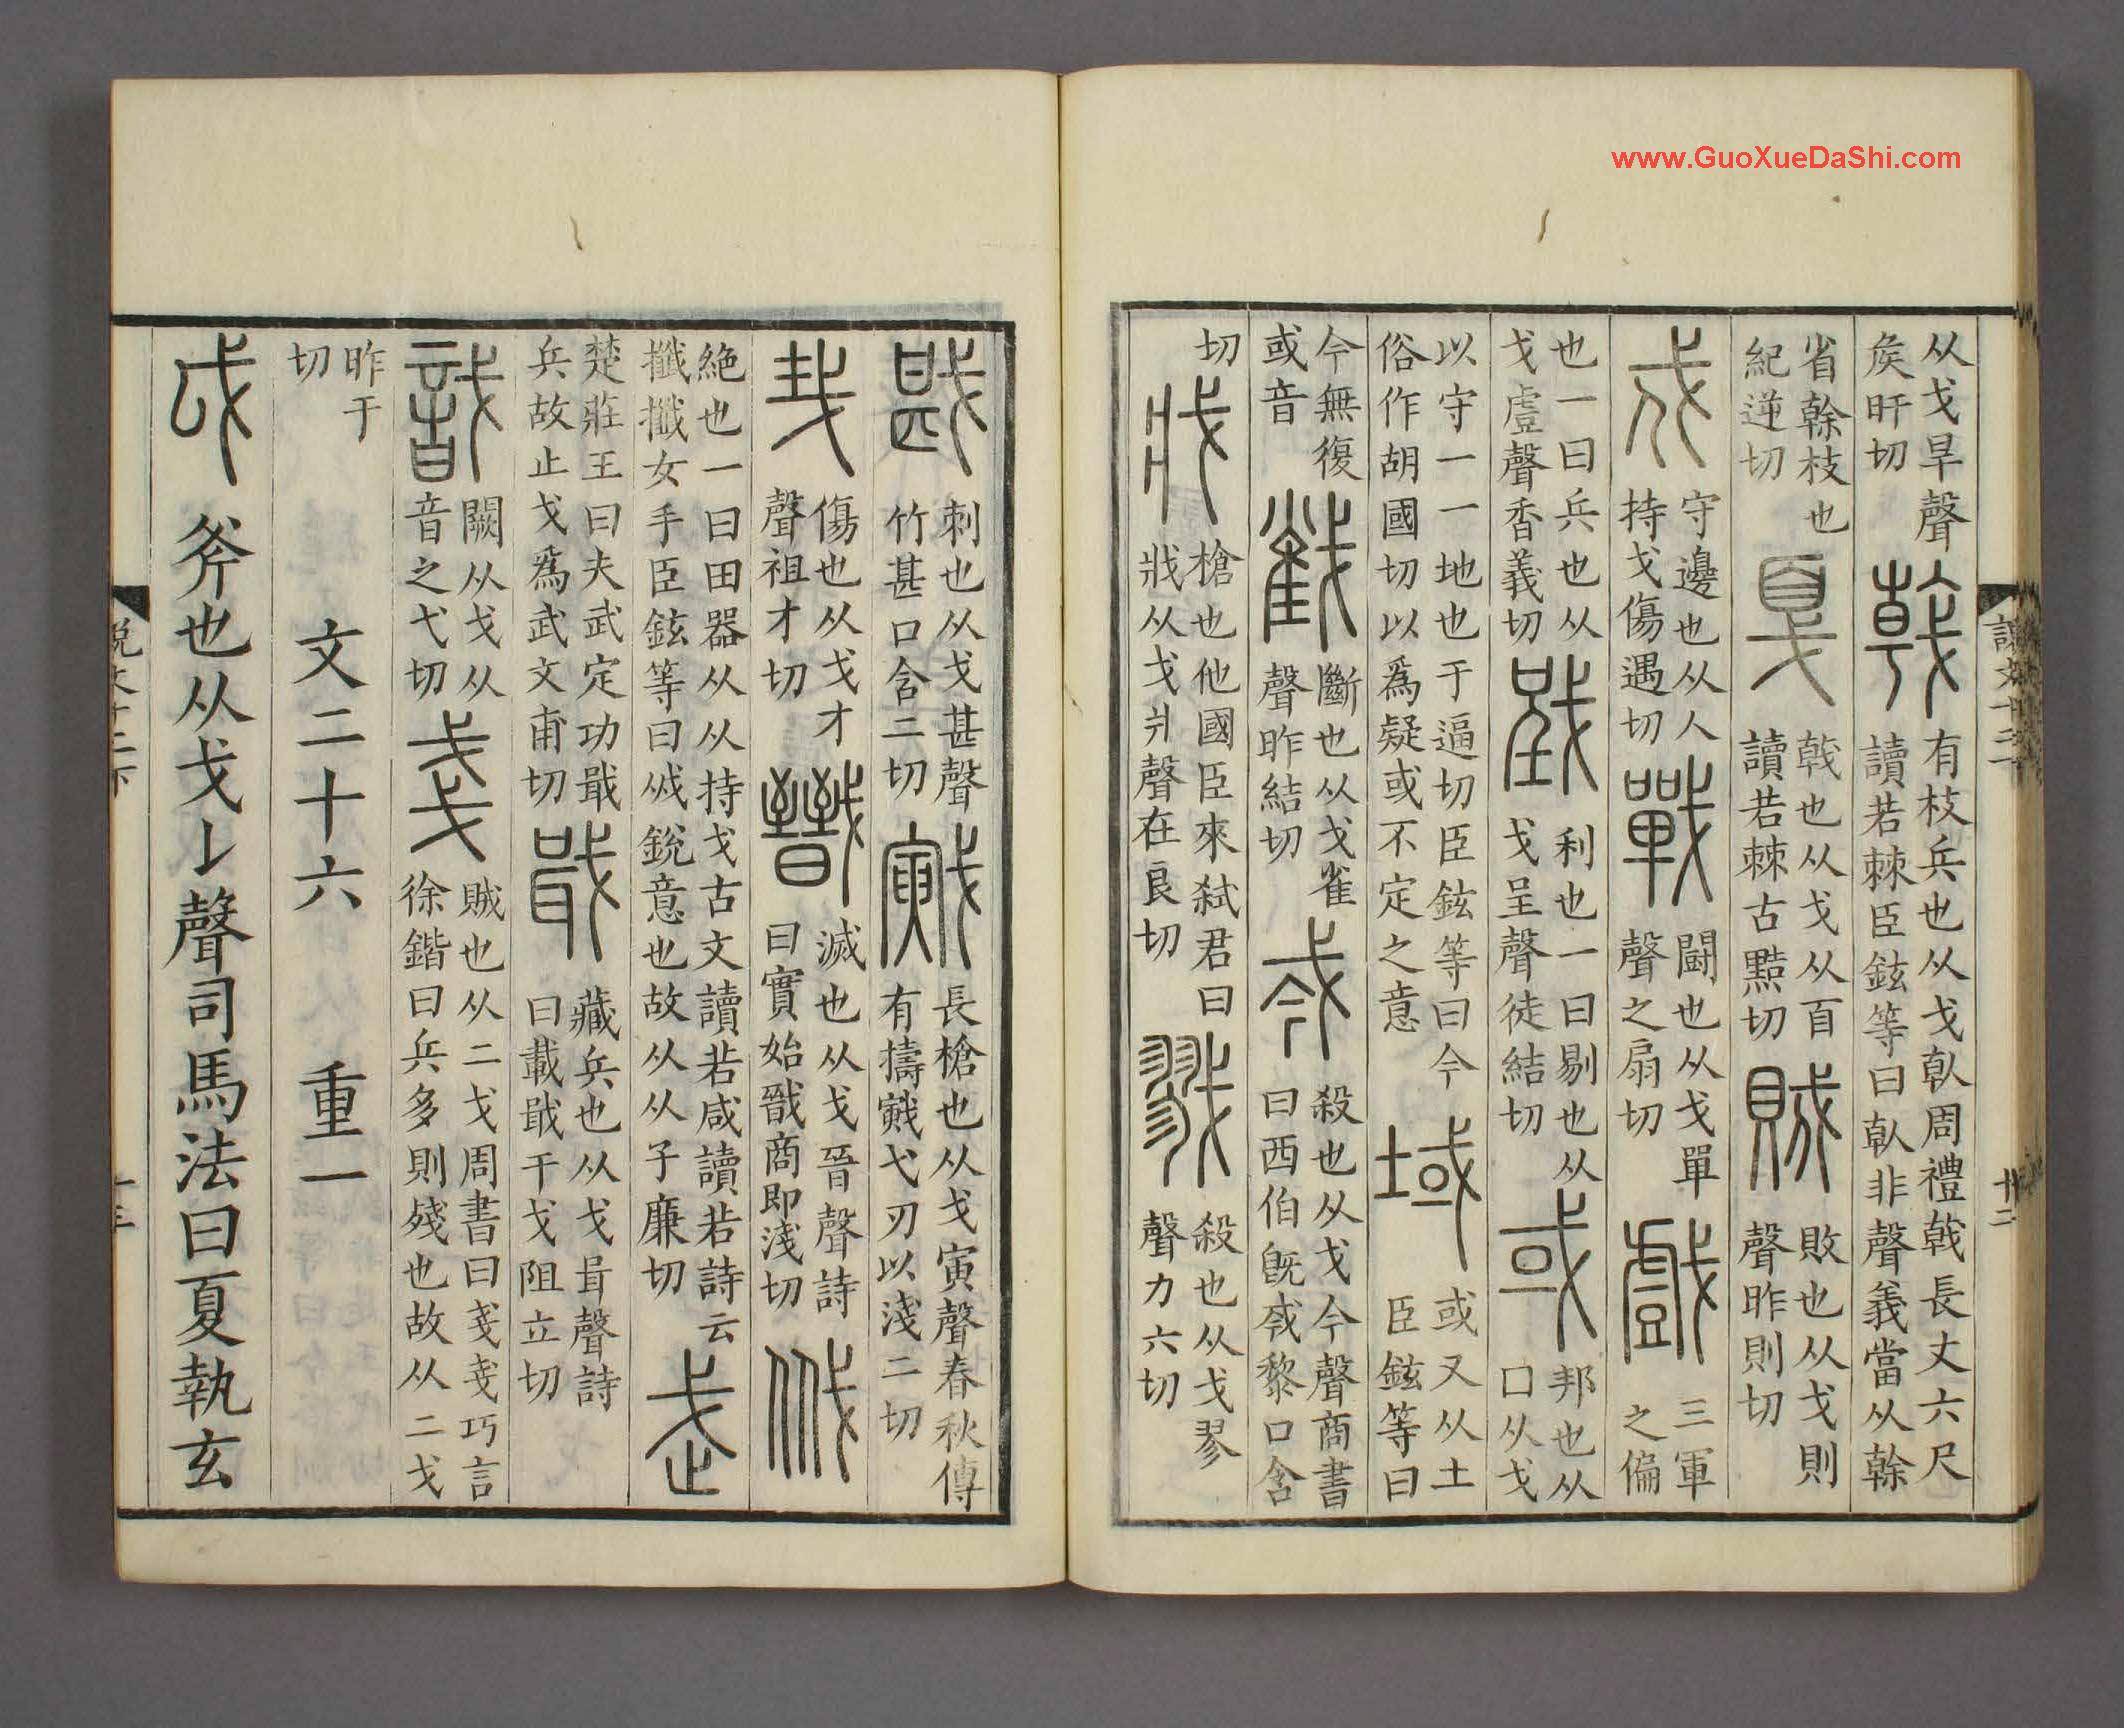 www.GuoXueDaShi.com
从戈旱聲矦旰切 戟 有枝兵也从戈倝周禮戟長丈六尺讀若棘臣鉉等曰倝非聲義當从榦
省榦枝也紀逆切 戛 戟也从戈从百讀若棘古黠切 賊 敗也从戈則聲昨則切
戍 守邊也从人持戈傷遇切 戰 鬭也从戈單聲之扇切 戲 三軍之偏
也一曰兵也从戈䖒聲香義切 戜 利也一曰剔也从戈呈聲徒結切 或 邦也从囗从戈
以守一一地也于逼切臣鉉等曰今俗作胡國切以爲疑或不定之意 域 或又从土臣鉉等曰
今無復或音 截 斷也从戈雀聲昨結切 𢦟 殺也从戈今聲商書曰西伯旣𢦟黎口含
切 戕 槍也他國臣來弑君曰戕从戈爿聲在良切 戮 殺也从戈翏聲力六切
戡 刺也从戈甚聲竹甚口含二切 戭 長槍也从戈寅聲春秋傳有擣戭弋刃以淺二切
𢦏 傷也从戈才聲祖才切 戩 滅也从戈晉聲詩曰實始戩商即淺切 㦰
絶也一曰田器从从持戈古文讀若咸讀若詩云攕攕女手臣鉉等曰㦰銳意也故从从子廉切 武
楚莊王曰夫武定功戢兵故止戈爲武文甫切 戢 藏兵也从戈咠聲詩曰載戢干戈阻立切
戠 闕从戈从音之弋切 戔 賊也从二戈周書曰戔戔巧言徐鍇曰兵多則殘也故从二戈
昨干切 文二十六 重一
戉 斧也从戈𠄌聲司馬法曰夏執玄
説文十二下